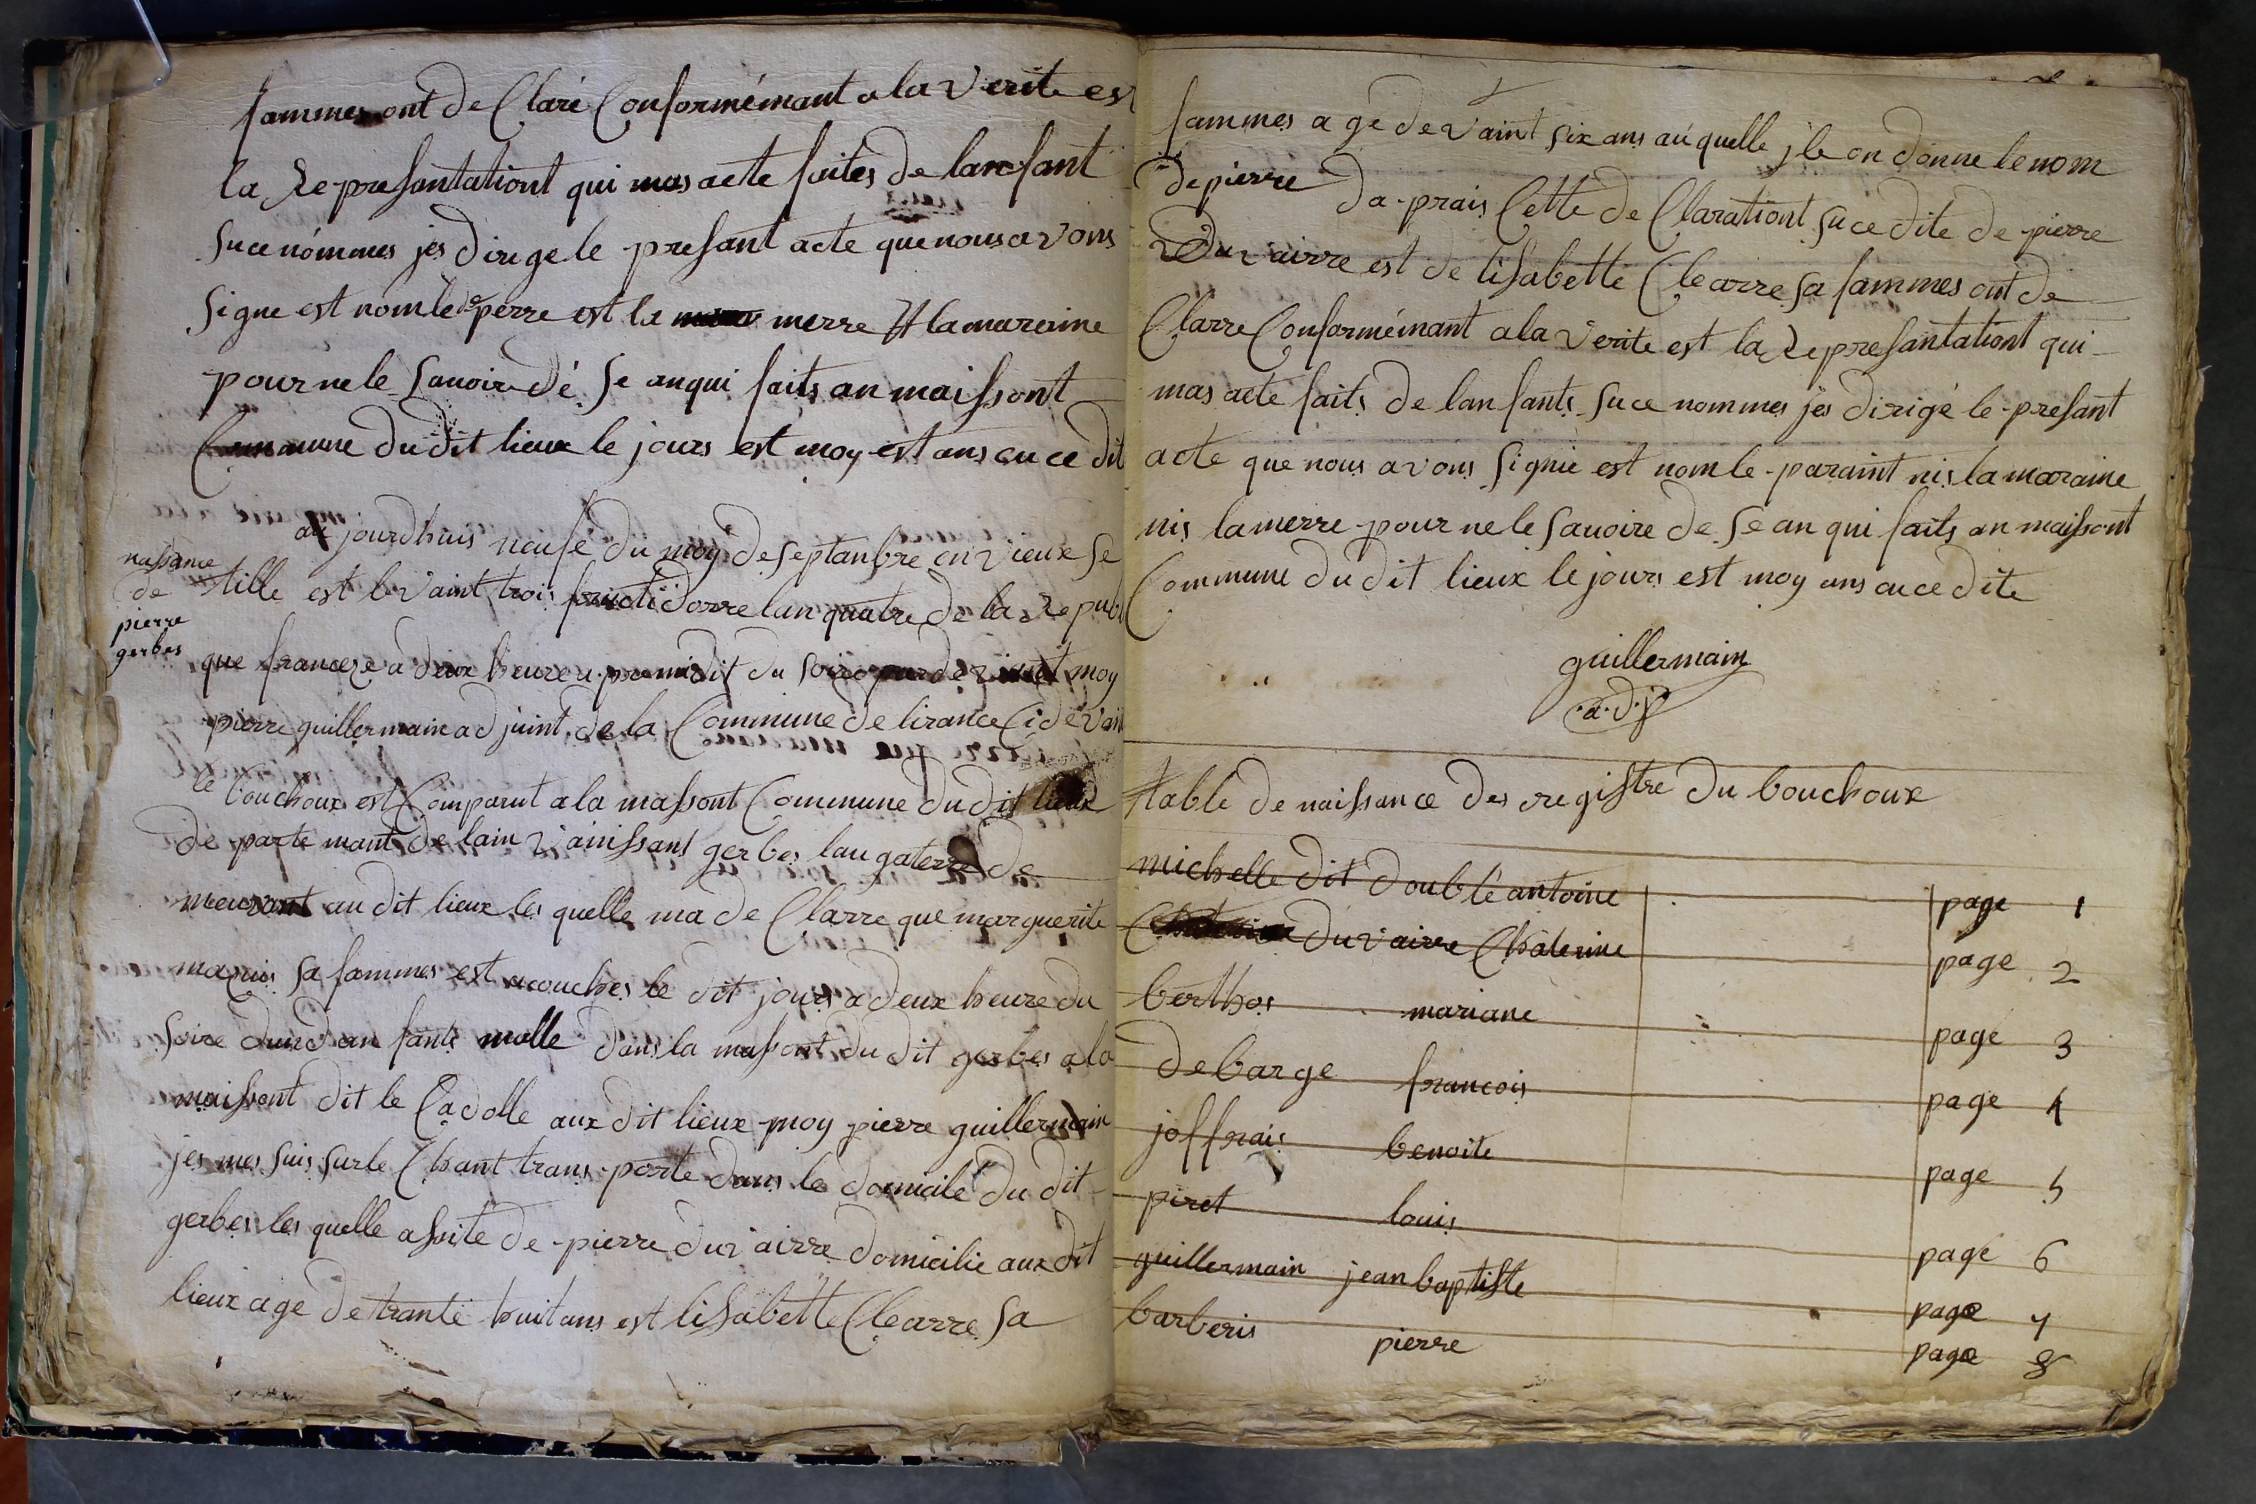 fammes ont de Claré Conformémant a la verite est
la Represantationt qui mas acte faites de lanfant
suce nómmes jes dirige le presant acte que nous avons
signe est nom le perre est la merre # la marenine
pour ne le savoir dé se an qui faits an maissont
Commune du dit lieux le jours est moy est ans en ce dit
naissance
de
pierre
gerbes
au jourdhuis neufe du moy de septanbre en vieux se
tille est le vaint trois fructidorre lan quatre de la Repub
que francese a deux heure a pre midit du soire par devant moy
pierre guillermain adjuint de la Commune de lirance Cidevant
le bouchoux est Comparut a la massont Commune du dit lieux
de parte mant de lain vainissant gerbes lau gaterre de
meurant au dit lieux les quelle ma de Clarre que marguerite
sa fammes est acouches le dit jours a deux heure du
soire dund an fants malle dans la massont du dit gerbes a la
maissont dit le Cadolle aux dit lieux moy pierre guillermain
jes mes suis surle Chant trans porte dans le domicile du dit
gerbes les quelle assite de pierre duvairre domicilie aux dit
lieux age de trante huit ans est lisabette Clearre sa
fammes a ge de vaint six ans au quelle jle on donne le nom
de pierre da prais Cette de Clarationt suce dite de pierre
Duvairre est de lisabette Clearre sa fammes ont de
Clarre Conformémant a la verite est la Represantationt qui
mas acte faits de lanfants suce nommes jes dirigé le presant
acte que nous avons signie est nom le paraint nis la maraine
nis la merre pour ne le savoire de se an qui faits an maissont
Commune du dit lieux le jours est moy ans en ce dite
guillermain
a.d.j
table de naissance des registre du bouchoux
michelle dit doublé antoine page 1
duvairre Chaterine page 2
berthos mariane page 3
debarge francois page 4
joffrais benoite page 5
piret louis page 6
guillermain jean baptiste page 7
barberis pierre page 8